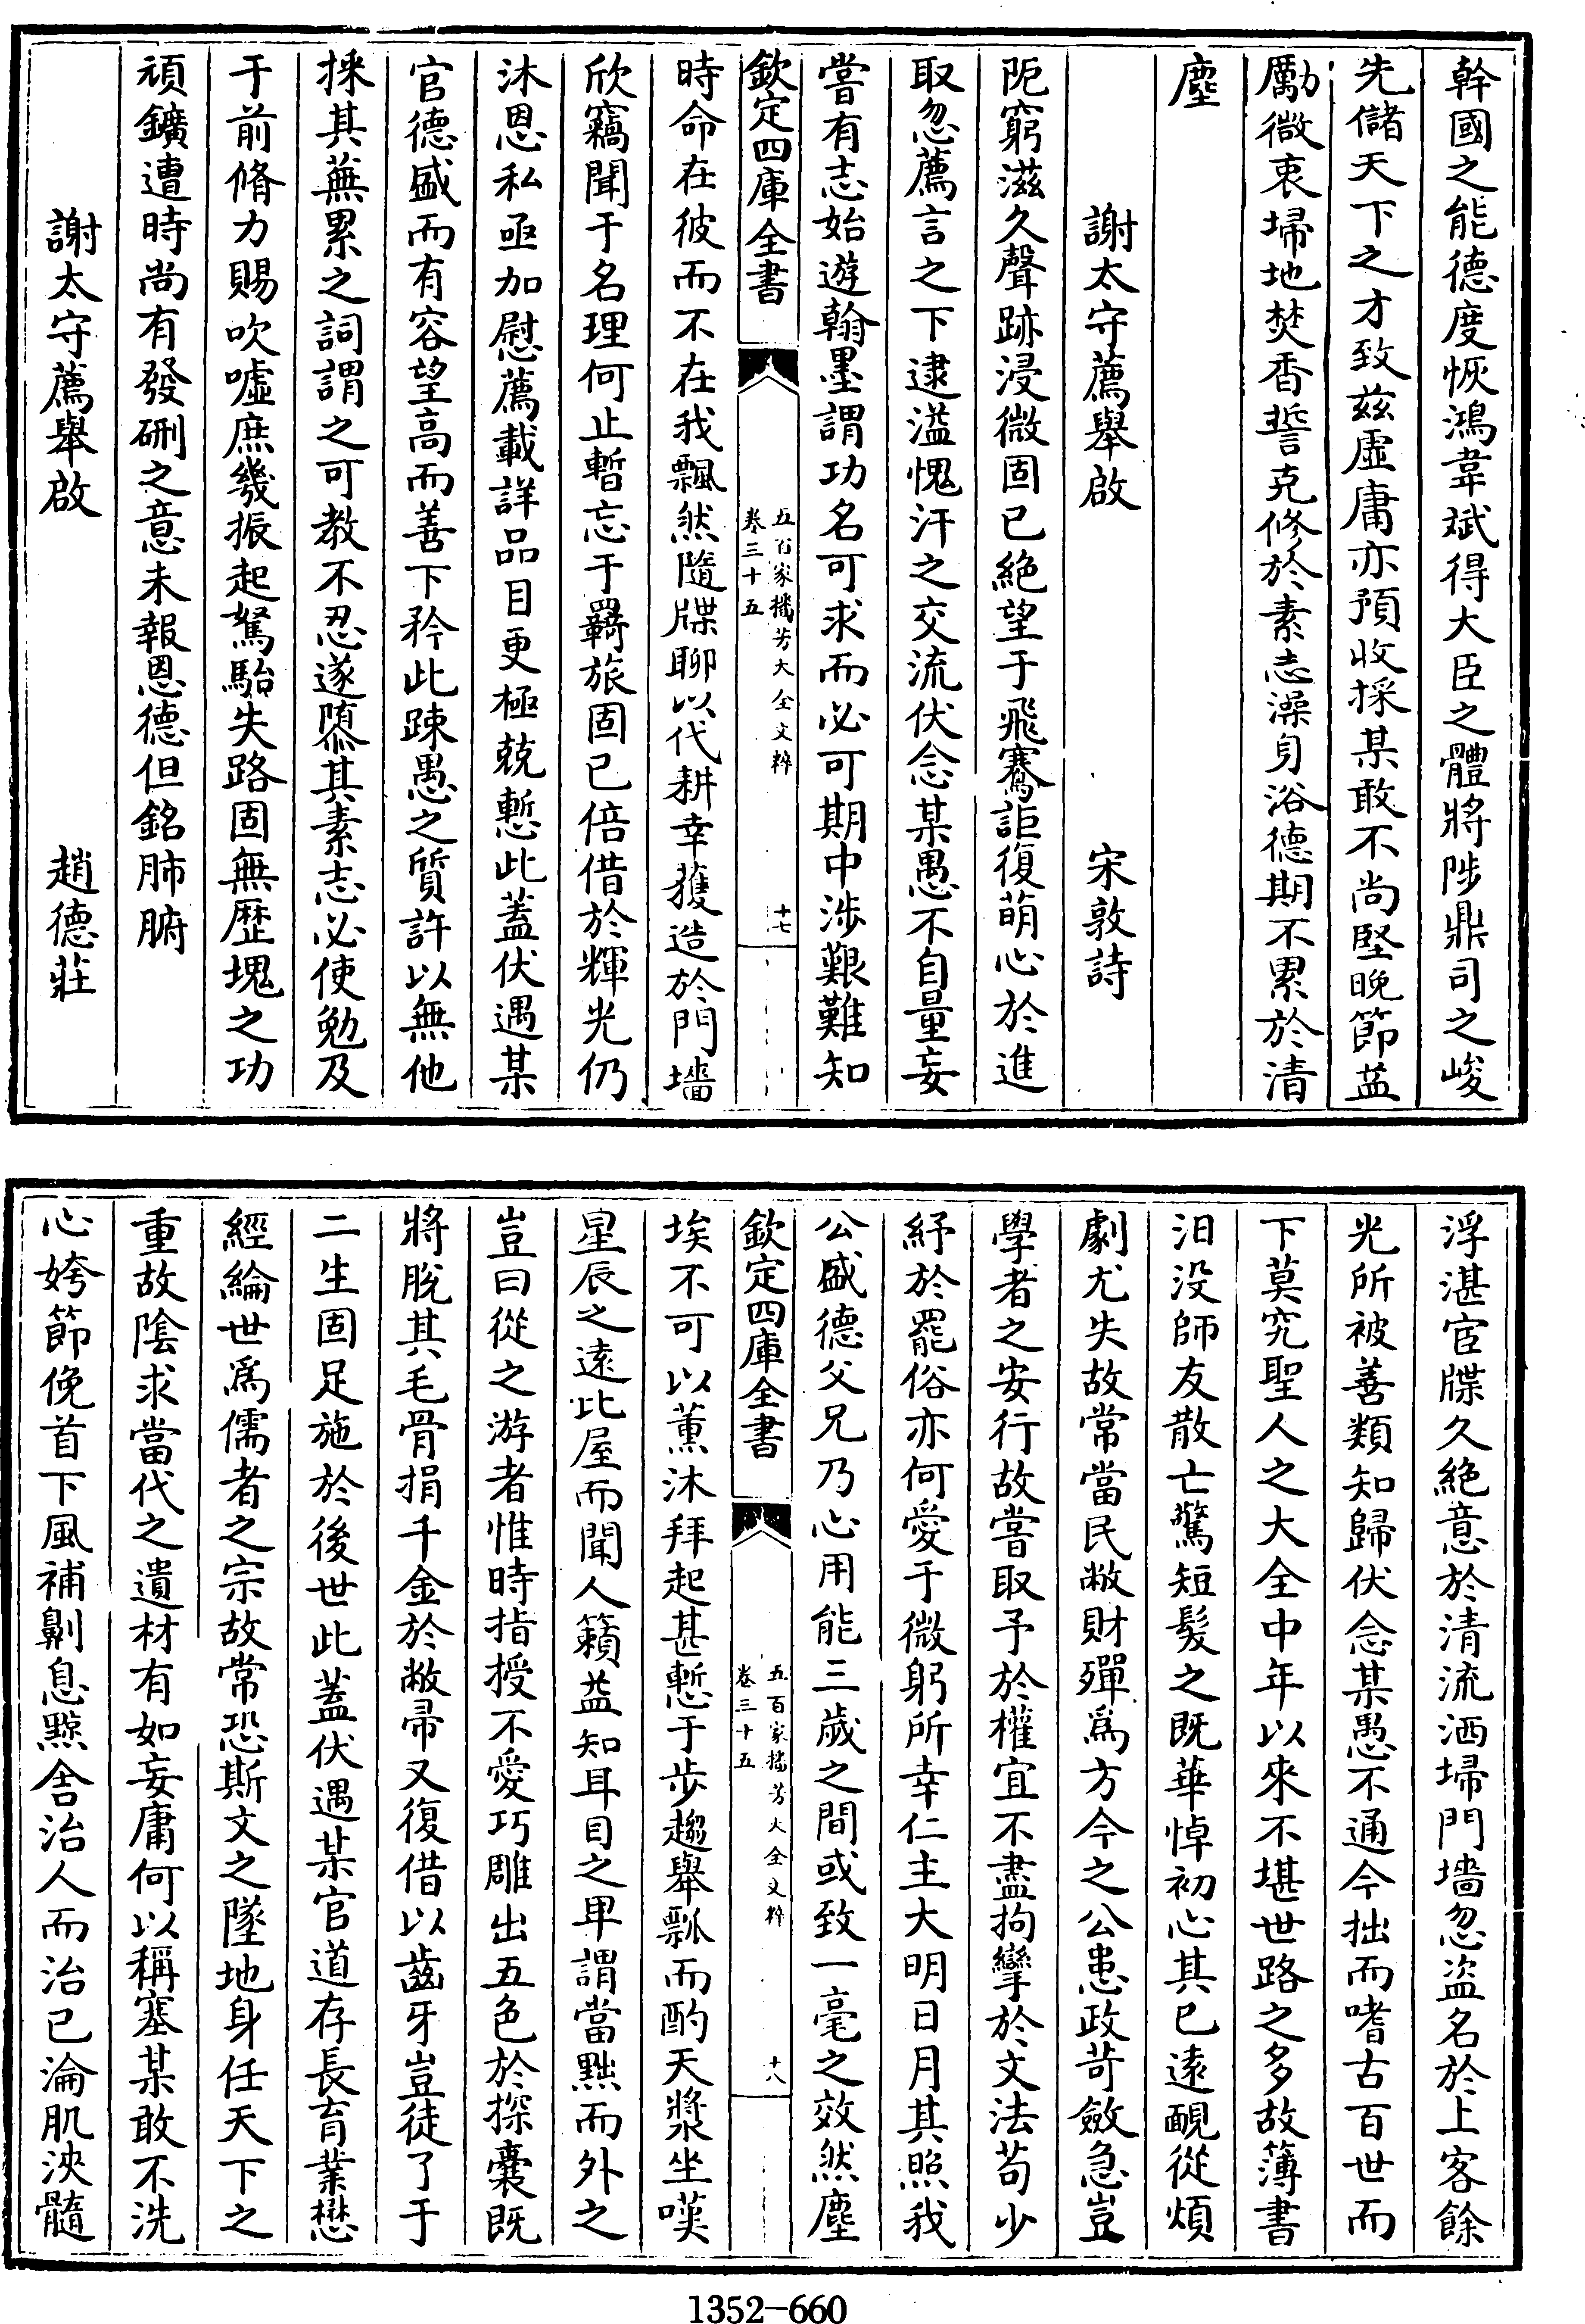 幹國之能德度恢鴻韋斌得大臣之體將陟鼎司之峻
先儲天下之才致兹虛庸亦預收採某敢不尚堅晚節益
勵微衷埽地焚香誓克修於素志澡身浴德期不累於清
塵
謝太守薦舉啟 宋敦詩
阨窮滋久聲跡浸微固已絶望于飛騫詎復萌心於進
取忽薦言之下逮溢愧汗之交流伏念某愚不自量妄
嘗有志始遊翰墨謂功名可求而必可期中涉艱難知
欽定四庫全書
五百家播芳大全文粹
卷三十五
十七
時命在彼而不在我飄然隨牒聊以代耕幸獲造於門墻
欣竊聞于名理何止暫忘于羇旅固已倍借於輝光仍
沐恩私亟加慰薦載詳品目更極兢慙此蓋伏遇某
官德盛而有容望高而善下矜此踈愚之質許以無他
採其蕪累之詞謂之可教不忍遂隳其素志必使勉及
于前脩力賜吹噓庶幾振起駑駘失路固無歴塊之功
頑鑛遭時尚有發硎之意未報恩德但銘肺腑
謝太守薦舉啟 趙德莊
浮湛宦牒久絶意於清流洒埽門墻忽盗名於上客餘
光所被善類知歸伏念某愚不通今拙而嗜古百世而
下莫究聖人之大全中年以來不堪世路之多故簿書
汩没師友散亡驚短髮之既華悼初心其已遠靦從煩
劇尤失故常當民敝財殫爲方今之公患政苛斂急豈
學者之安行故嘗取予於權宜不盡拘攣於文法苟少
紓於罷俗亦何愛于微躬所幸仁主大明日月其照我
公盛德父兄乃心用能三歲之間或致一毫之效然塵
欽定四庫全書
五百家播芳大全文粹
卷三十五
十八
埃不可以薰沐拜起甚慙于步趨舉瓢而酌天漿坐嘆
星辰之遠比屋而聞人籟益知耳目之卑謂當黜而外之
豈曰從之游者惟時指授不愛巧雕出五色於探囊既
將脫其毛骨捐千金於敝帚又復借以齒牙豈徒了于
二生固足施於後世此蓋伏遇某官道存長育業懋
經綸世爲儒者之宗故常恐斯文之墜地身任天下之
重故陰求當代之遺材有如妄庸何以稱塞某敢不洗
心姱節俛首下風補劓息黥舍治人而治已淪肌浹髓
1352-660